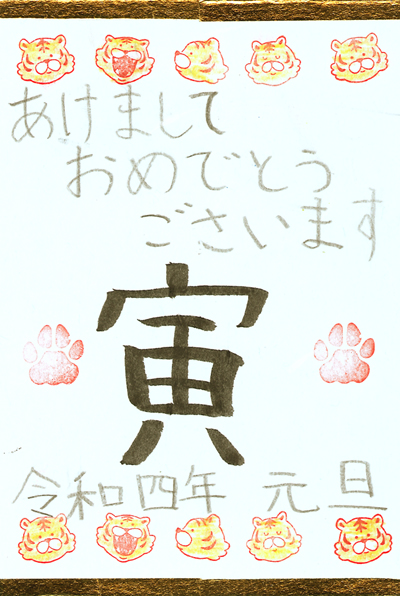 あけまして
おめでとう
ございます
寅
令和四年 元旦